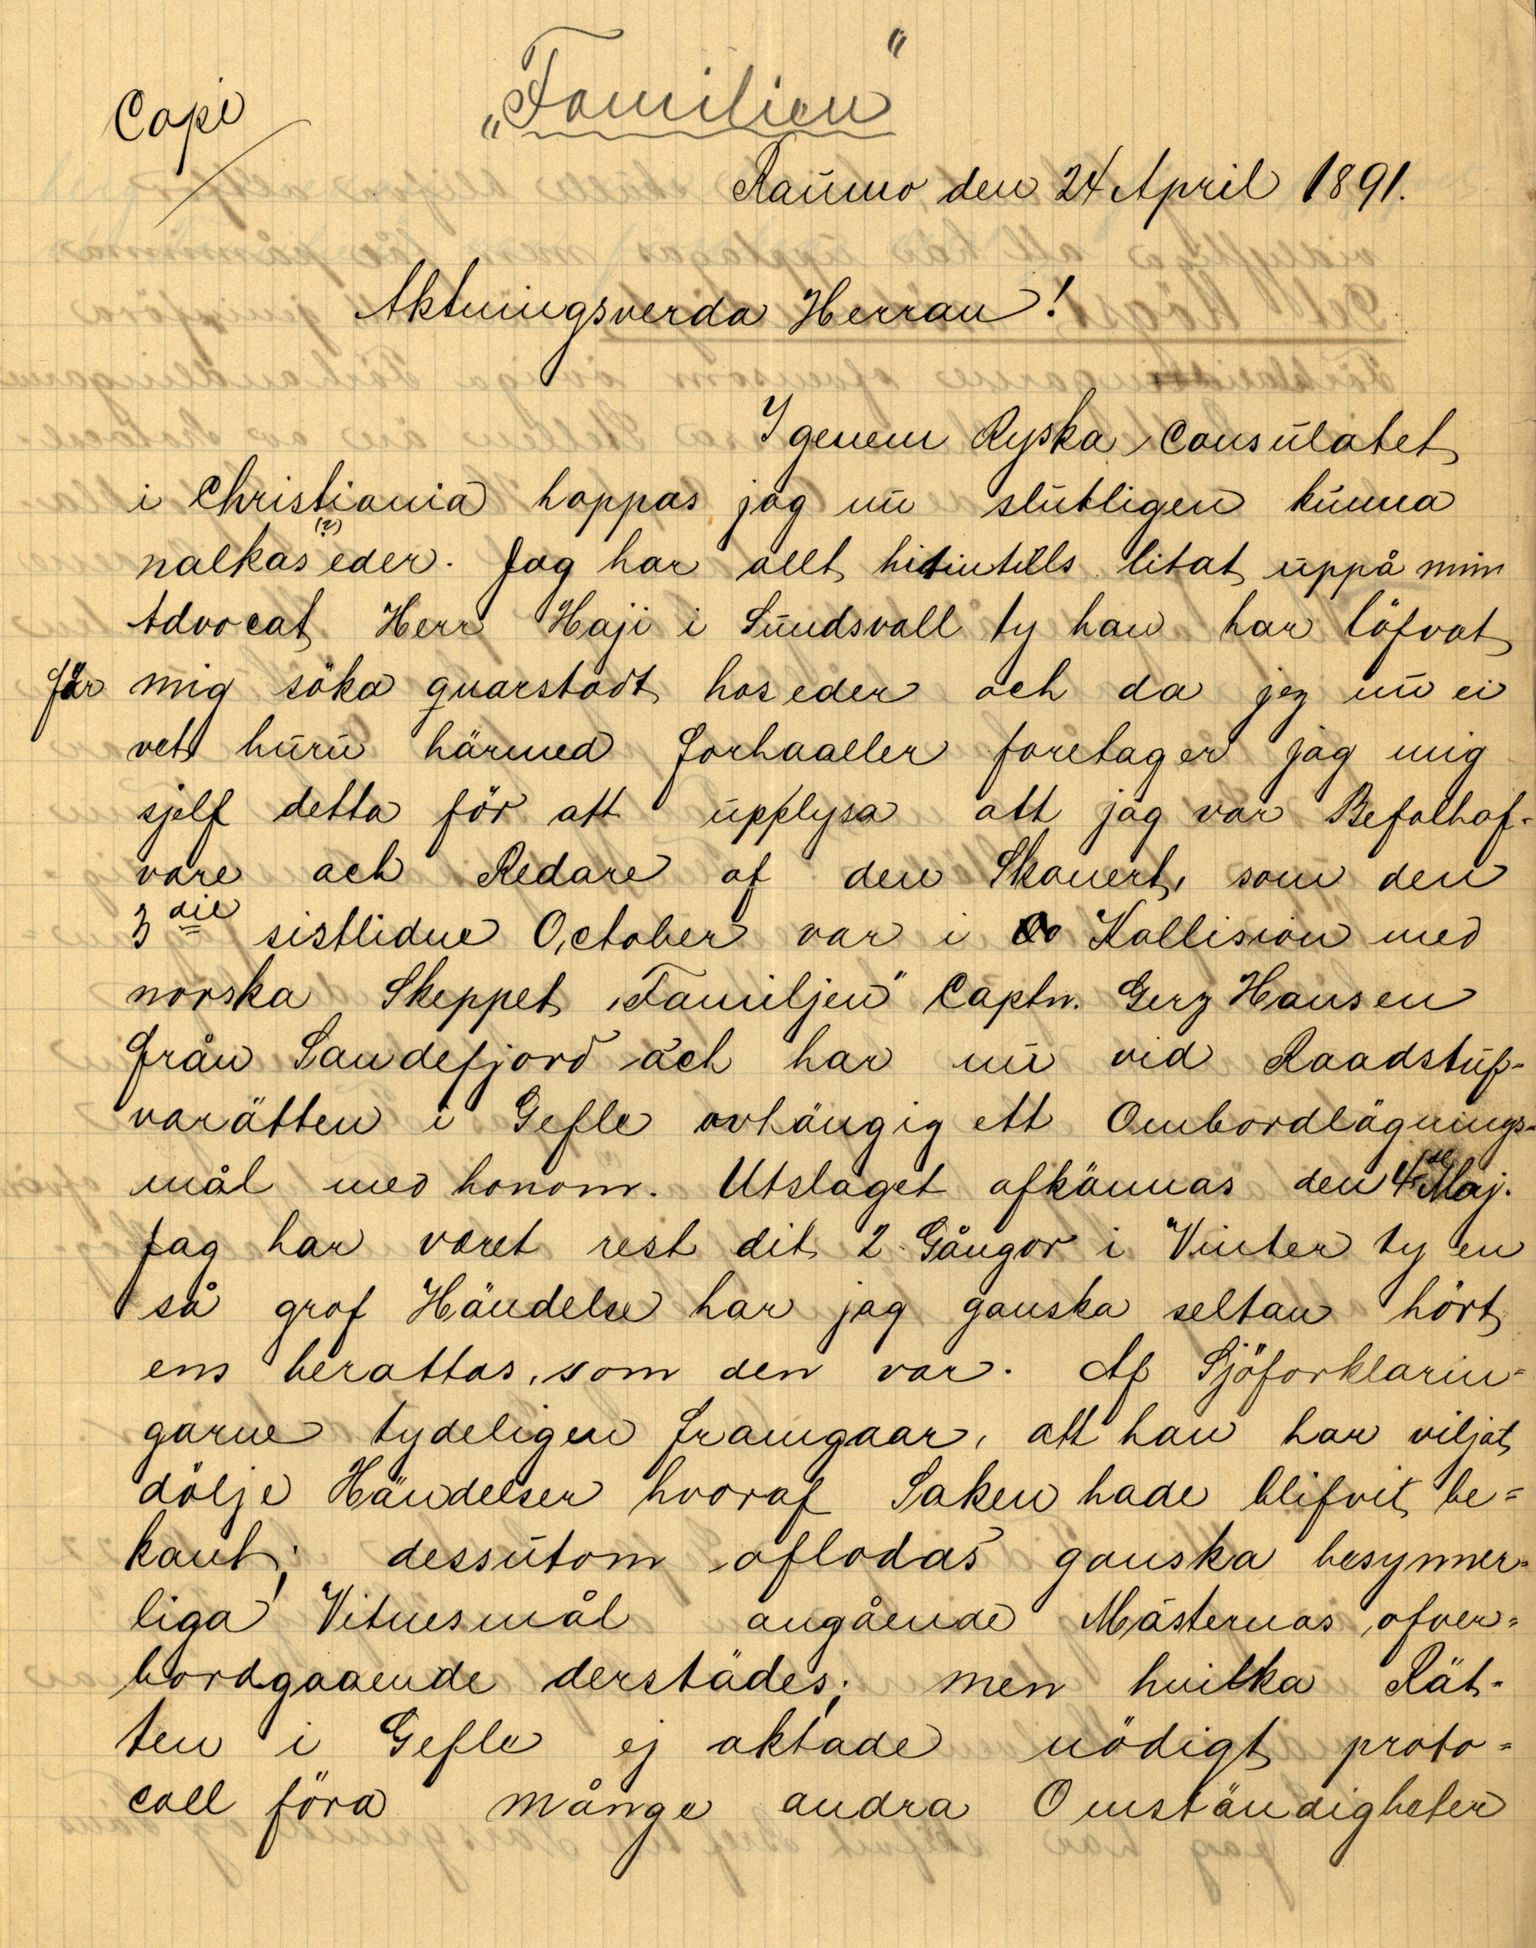 Copi
„Familien"
Raumo den 24 April 1891.
Aktningsverda Herran!
Igenem Ryska Consulatet
i Christiania hoppas jag nu slutligen kunna
nalkas (?) eder. Jag har allt hitintills litat uppå min
Advocat Herr Haji i Sundsvall ty han har löfvat
för mig söka quarstadt hos eder och da jeg nu ei
vet huru härmed forhaaller foretager jag mig
sjelf detta för att upplysa att jag var Befalhaf-
vare och Redare af den Skonert, som den
3die sistlidne October var i Kollision med
norska Skeppet „Familjen" Captn. Gerz Hansen
från Sandefjord och har nu vid Raadstuf-
varätten i Gefle avhängig ett Ombordlägnings-
mål med honom. Utslaget afkännas den 4de Maj.
Jag har varet rest dit 2 Gångor i Vinter ty en
så grof Händelse har jag ganska seltan hört
ens berattas, som den var. Af Sjöforklarin-
garne tydeligen framgaar, att han har viljat
dölje Händelser hvoraf Saken hade blifvit be-
kant; dessutom aflodas ganska besynner-
liga Vitnesmål angående Mästernas ofver-
bordgaaende derstädes; men hvilka Rät-
ten i Gefle ej aktade nödigt proto-
coll föra månge andra Omständigheter